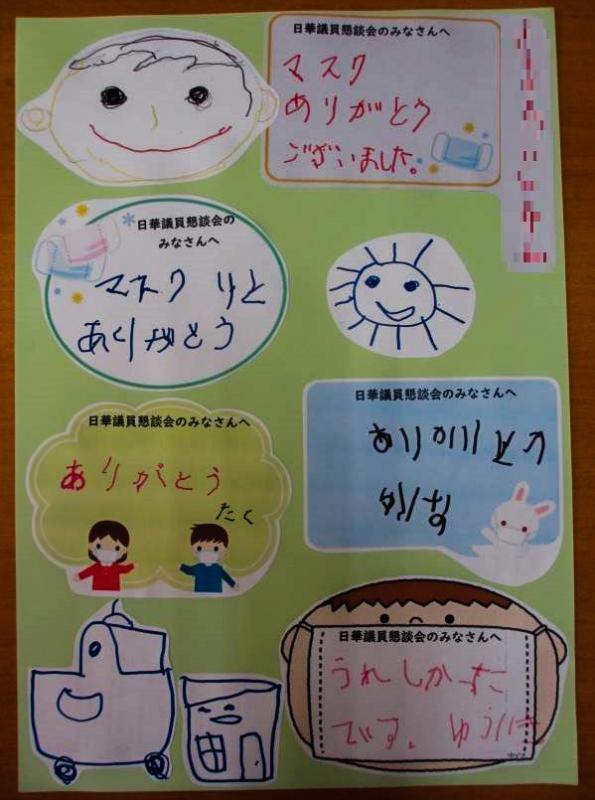 日華議員懇談会のみなさんへ
マスク
ありがとう
ございました。
日華議員懇談会の
みなさんへ
マスク りと
ありがとう
日華議員懇談会のみなさんへ
ありがとう
たく
日華議員懇談会のみなさんへ
日華議員懇談会のみなさんへ
うれしかった
です。